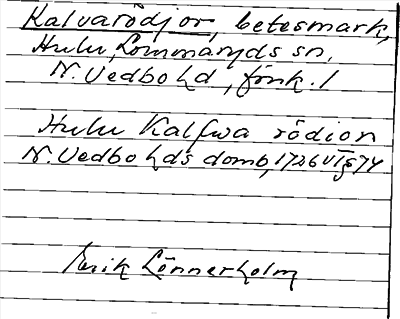 Kalvarödjor, betesmark,
Hulu, Lommaryds sn,
N. Vedbo hd, Jönk. l
Hulu Kalfwa rödion
N. Vedbo hds domb, 1726 VI 74
Erik Lönnerholm